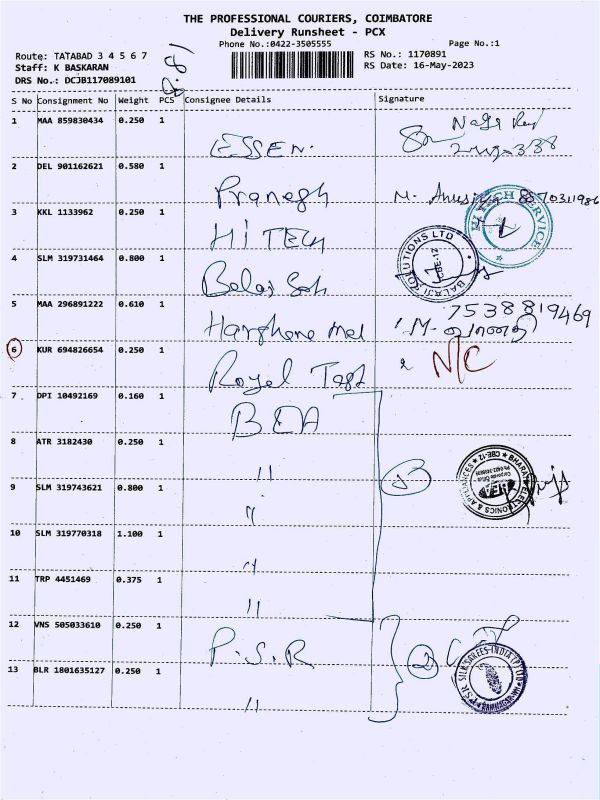 THE PROFESSIONAL COURIERS, COIMBATORE
Delivery Runsheet - PCX
Phone No.:0422-3505555 Page No.:1
Route: TATABAD 3 4 5 6 7 RS No.: 1170891
Staff: K BASKARAN RS Date: 16-May-2023
DRS No.: DCJB117089101
S No Consignment No Weight PCS Consignee Details Signature
1 MAA 859830434 0.250 1
ESSEN.
2 DEL 901162621 0.580 1
Pranegh M. Anusiya
3 KKL 1133962 0.250 1
HiTECH HITECH SERVICE
4 SLM 319731464 0.800 1
BALAJI SOLUTIONS LTD CBE-12
5 MAA 296891222 0.610 1
7538819469
6 KUR 694826654 0.250 1
Royal N/C
7 DPI 10492169 0.160 1
8 ATR 3182430 0.250 1
" BHARAT ELECTRONICS & APPLIANCES CBE-12
9 SLM 319743621 0.800 1
"
10 SLM 319770318 1.100 1
"
11 TRP 4451469 0.375 1
"
12 VNS 505033610 0.250 1
P.S.R 2
13 BLR 1801635127 0.250 1
" P.S.R SILK SAREES INDIA (P) LTD